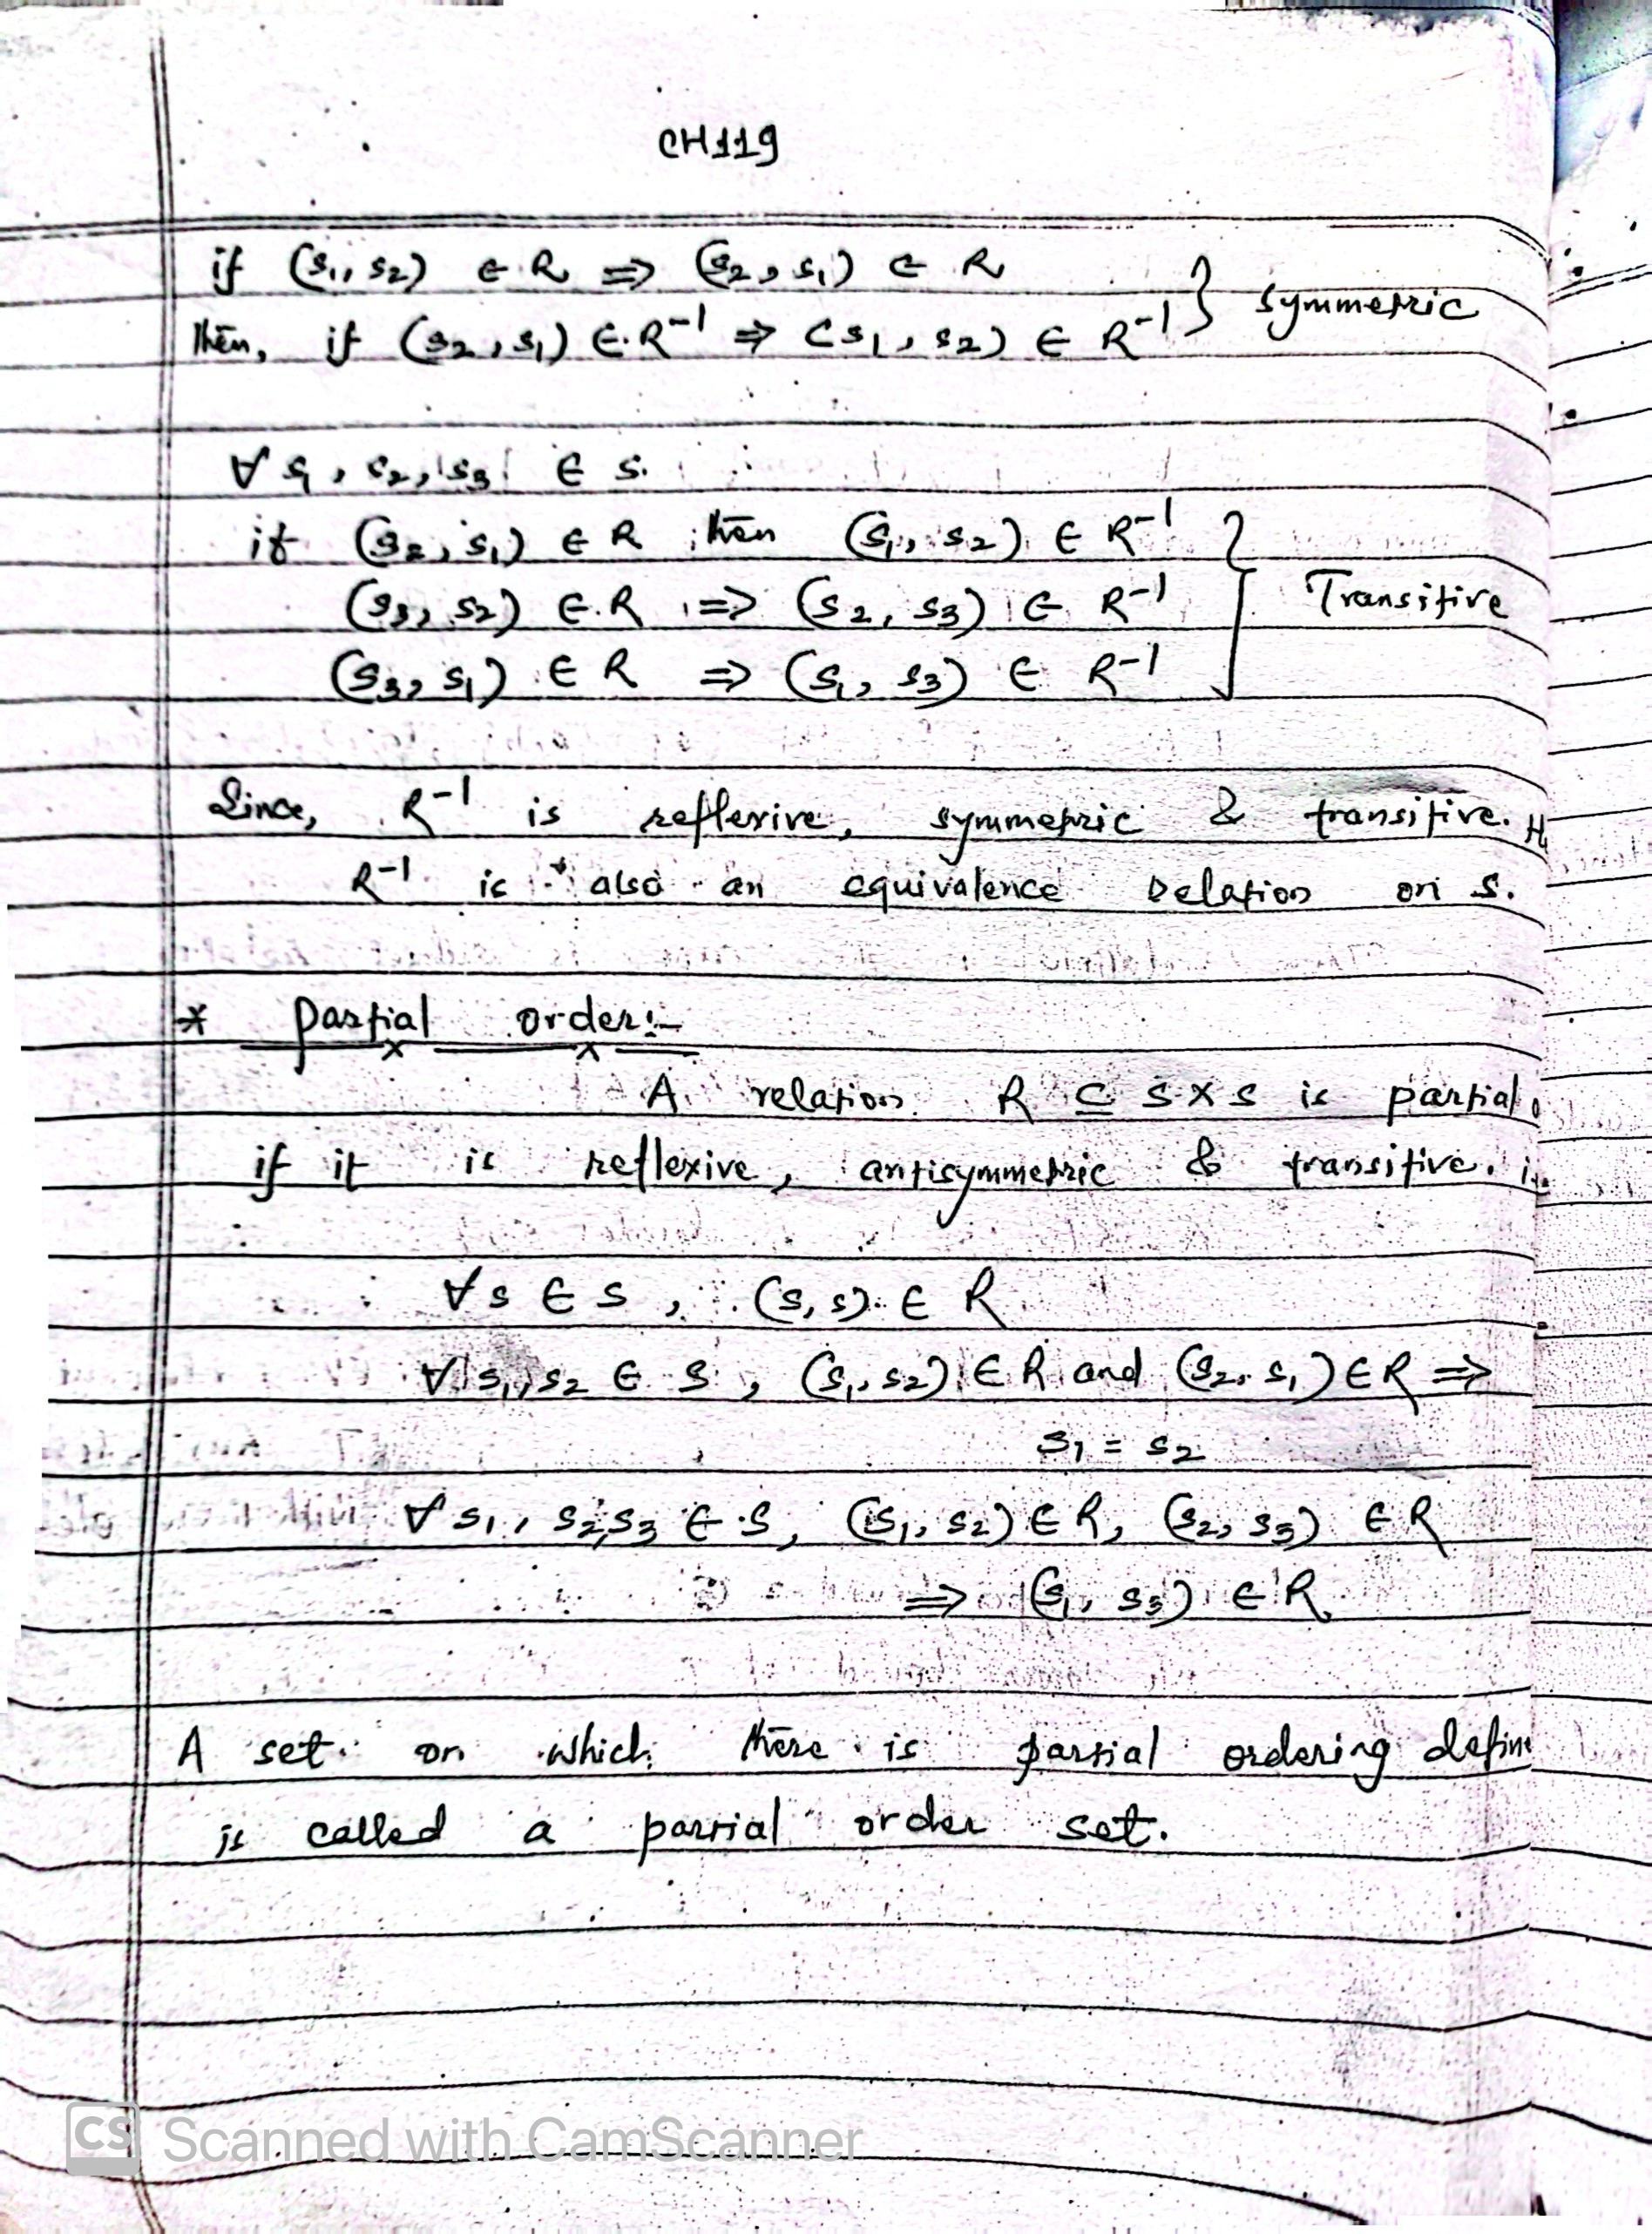 CH119
if (s₁, s₂) ∈ R ⇒ (s₂, s₁) ∈ R
then, if (s₂, s₁) ∈ R⁻¹ ⇒ (s₁, s₂) ∈ R⁻¹ } symmetric
∀ s₁, s₂, s₃ ∈ S.
if (s₂, s₁) ∈ R then (s₁, s₂) ∈ R⁻¹
(s₃, s₂) ∈ R ⇒ (s₂, s₃) ∈ R⁻¹ } Transitive
(s₃, s₁) ∈ R ⇒ (s₁, s₃) ∈ R⁻¹
Since, R⁻¹ is reflexive, symmetric & transitive.
R⁻¹ is also an equivalence relation on S.
* Partial order:-
A relation R ⊆ S×S is partial
if it is reflexive, antisymmetric & transitive.
∀ s ∈ S, (s, s) ∈ R
∀ s₁, s₂ ∈ S, (s₁, s₂) ∈ R and (s₂, s₁) ∈ R ⇒
s₁ = s₂
∀ s₁, s₂, s₃ ∈ S, (s₁, s₂) ∈ R, (s₂, s₃) ∈ R
⇒ (s₁, s₃) ∈ R
A set on which there is partial ordering define
is called a partial order set.
CS Scanned with CamScanner